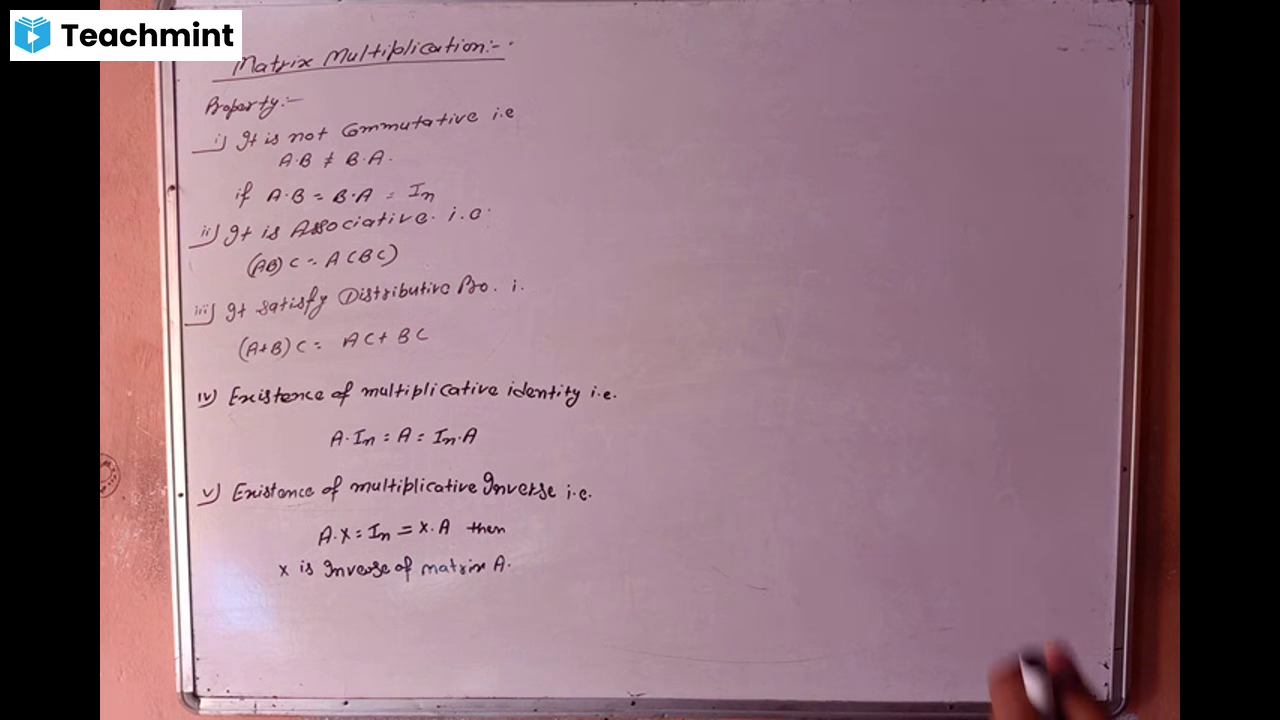 Teachmint
Matrix Multiplication:-
Property:-
i) It is not Commutative i.e
A·B ≠ B·A.
if A·B = B·A = In
ii) It is Associative. i.e.
(AB) C = A (BC)
iii) It satisfy Distributive Pro. i.
(A+B) C = AC + BC
iv) Existence of multiplicative identity i.e.
A·In = A = In·A
v) Existence of multiplicative Inverse i.e.
A·X = In = X·A then
X is Inverse of matrix A.